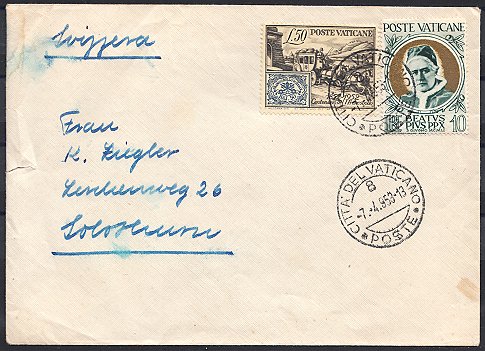 Svizzera
L.50 POSTE VATICANE
POSTE VATICANE
BEATVS
PIVS PP.X
10
CITTÀ DEL VATICANO
POSTE
Frau
K. Ziegler
26
Solothurn
CITTÀ DEL VATICANO
8
-7.-4.953-13
POSTE